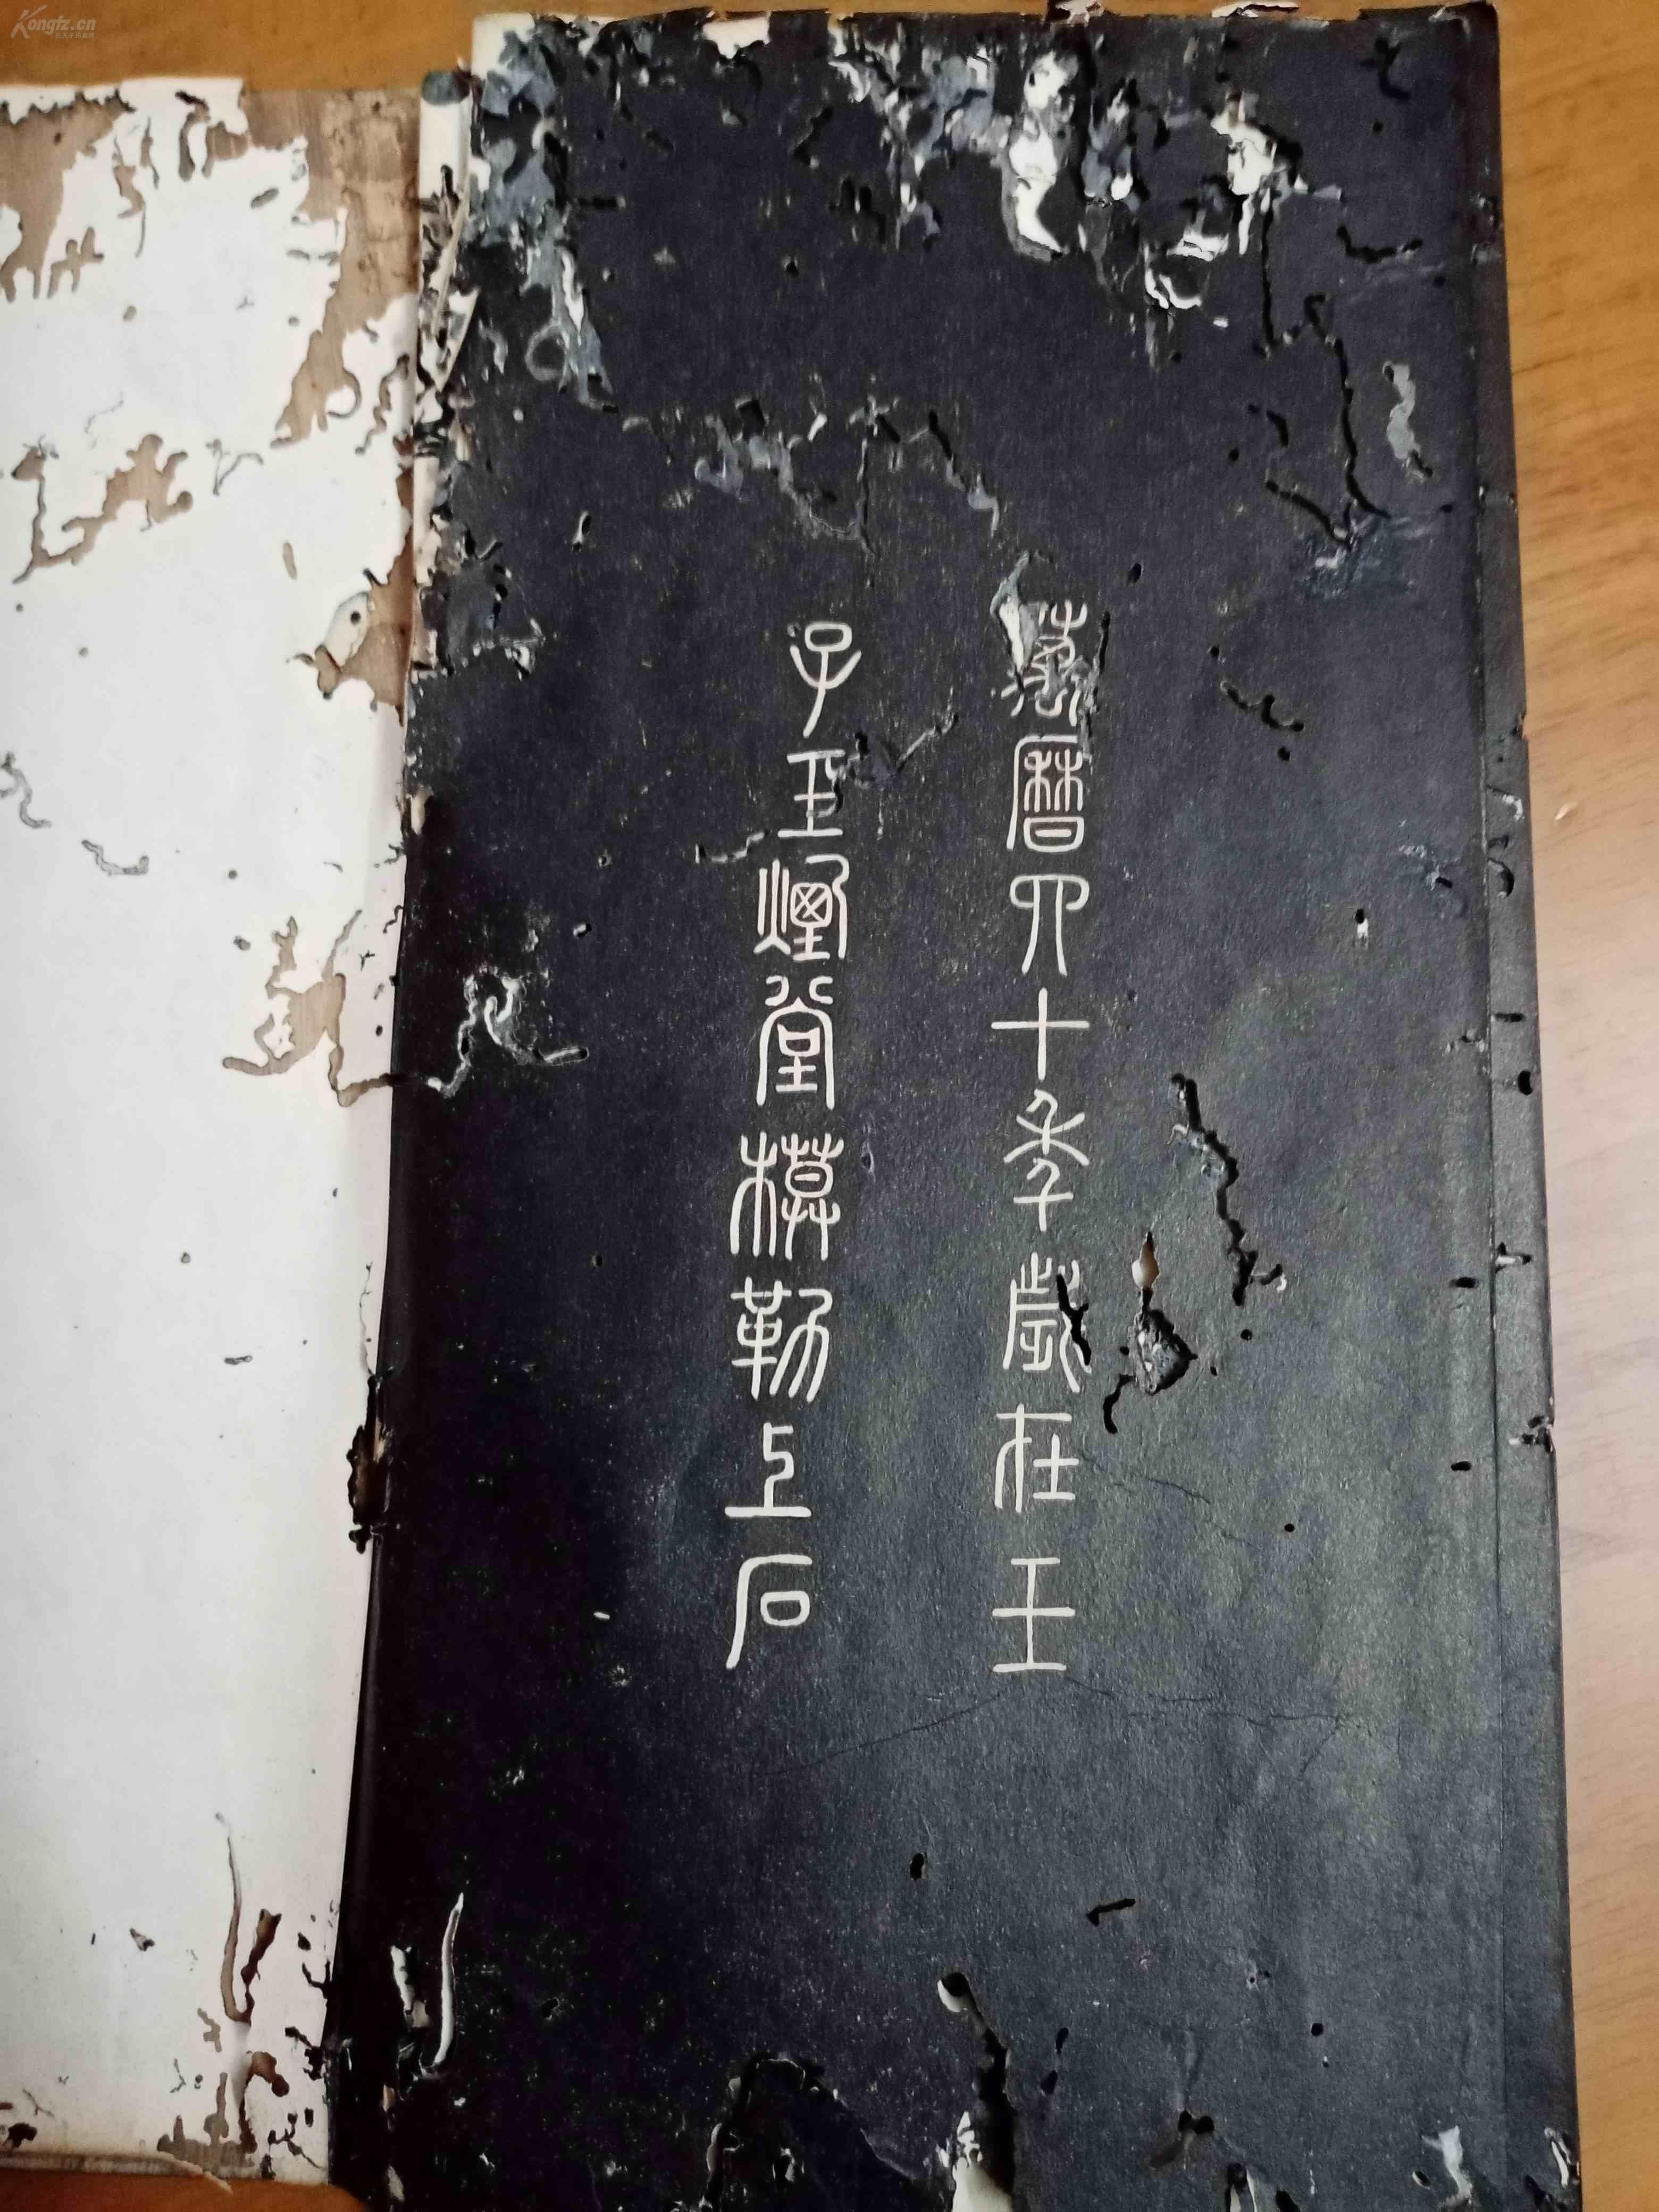 Kongfz.cn
萬曆四十年歲在壬
子玉煙堂模勒上石